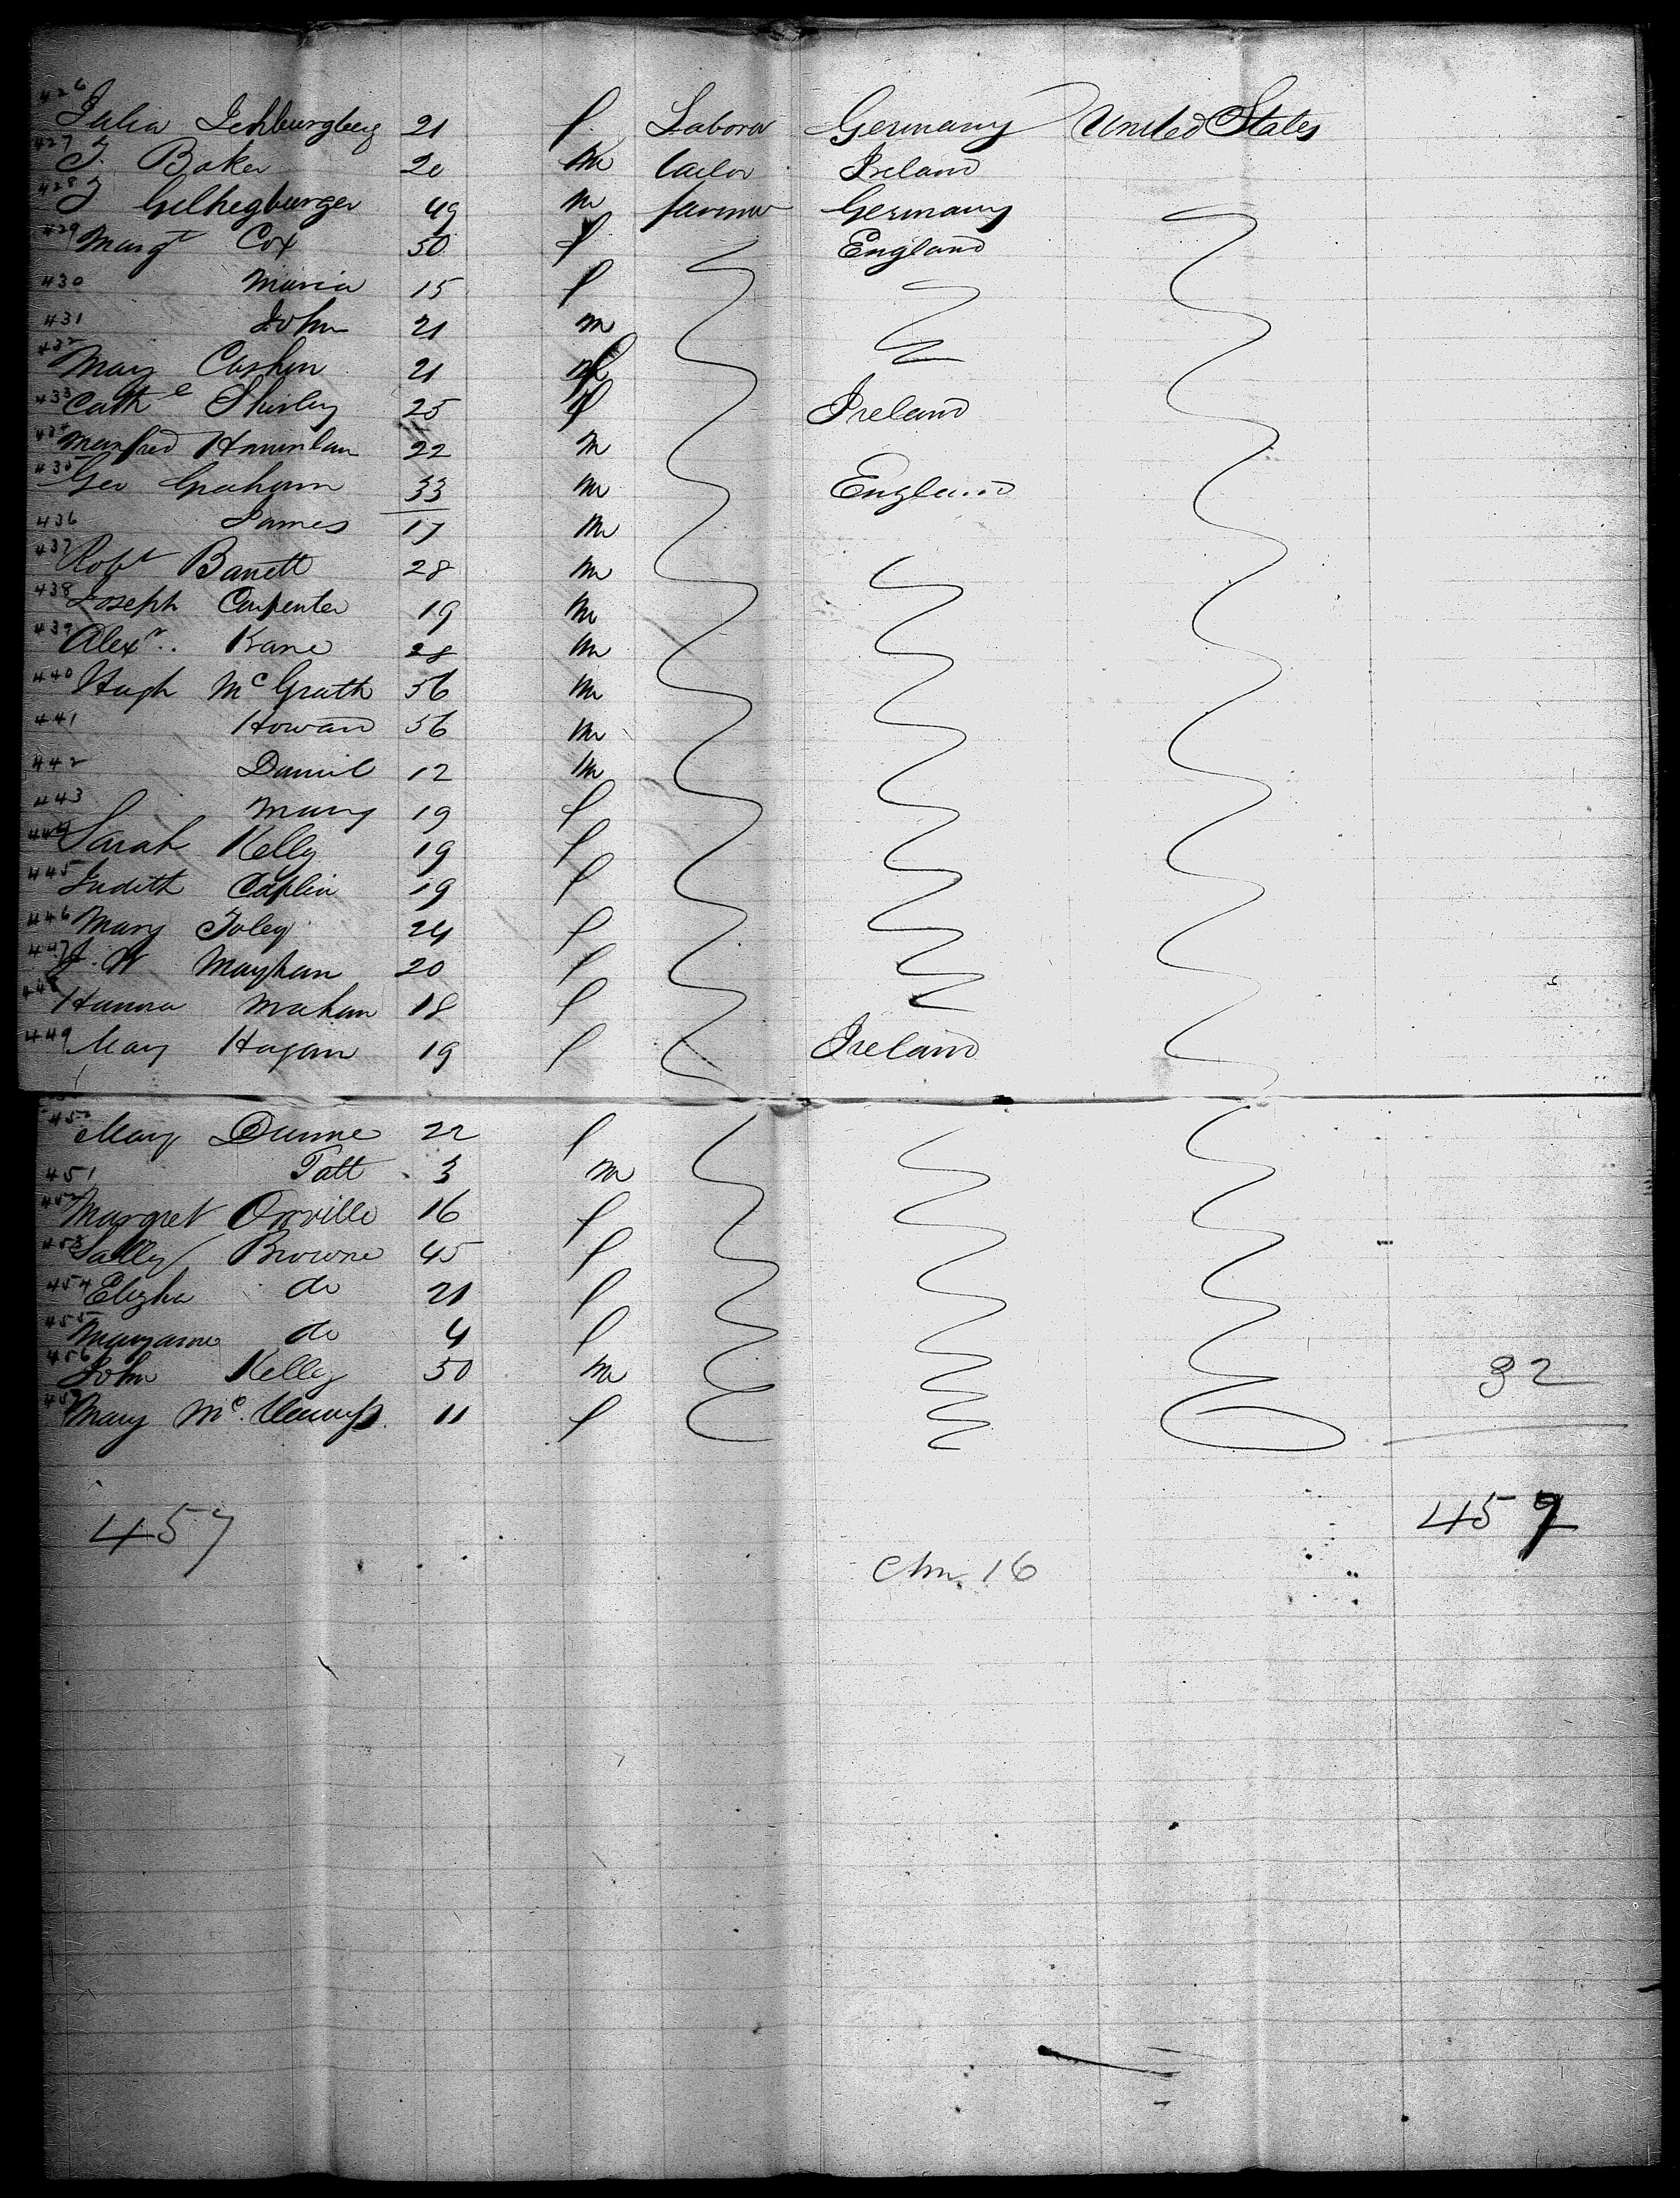 426 Julia 21 f. Laborer Germany United States
427 J. Baker 20 m tailor Ireland
428 J 49 m farmer Germany
429 Margt Cox 50 f England
430 Maria 15 f
431 John 21 m
432 Mary Cashin 21 f
433 Cathe Shirley 25 f Ireland
434 22 m
435 Geo Graham 33 m England
436 James 17 m
437 Robt Barrett 28 m
438 Joseph Carpenter 19 m
439 Alexr. Kane 28 m
440 Hugh McGrath 56 m
441 Howard 56 m
442 Daniel 12 m
443 Mary 19 f
444 Sarah Kelly 19 f
445 Judith Caplin 19 f
446 Mary Foley 24 f
447 J. W Mayhan 20 f
448 Hanora Mahan 18 f
449 Mary Hagan 19 f Ireland
450 Mary Dunne 22 f
451 Patt 3 m
452 Margret Orville 16 f
453 Sally Browne 45 f
454 do 21 f
455 Maryanne do 4 f
456 John Kelly 50 m 32
457 Mary Mc. 11 f
457 457
16